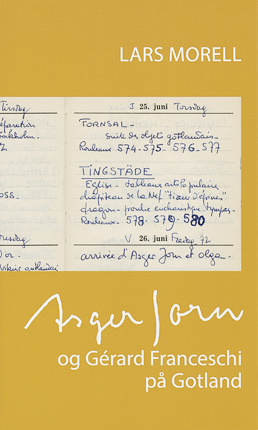 LARS MORELL
Tirsdag
J 25. juni Torsdag
FORNSAL -
suite des objets gotlandais -
Rouleaux 574-575-576-577
TINGSTÄDE
Eglise - tableaux
chapiteau de la Nef
dragon -
Rouleaux - 578 - 579 - 580
V 26. juni Fredag
arrivée d'Asger Jorn et olga -
Asger Jorn
og Gérard Franceschi
på Gotland